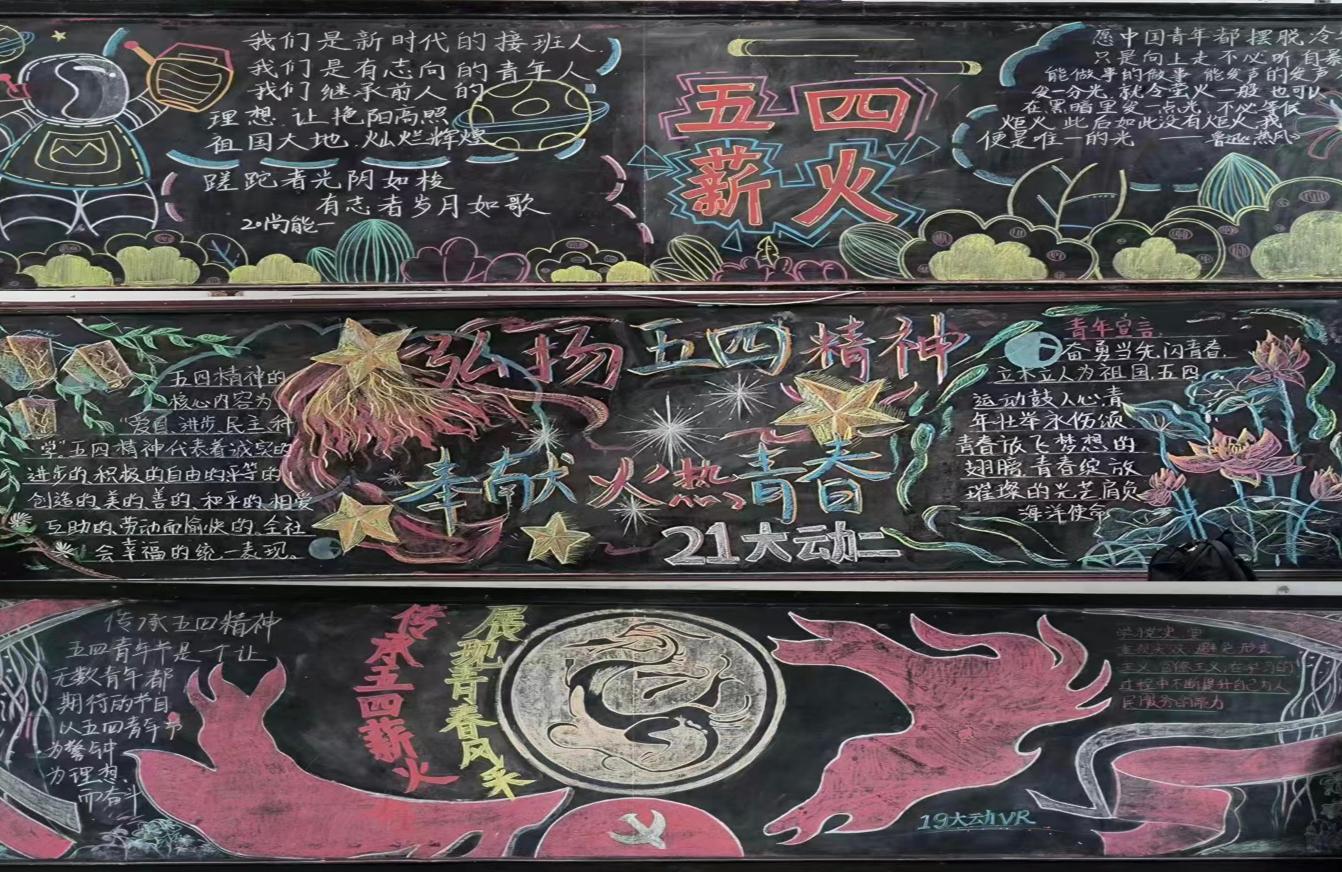 我们是新时代的接班人
我们是有志向的青年人
我们继承前人的
理想.让艳阳高照
祖国大地.灿烂辉煌
蹉跎者光阴如梭
有志者岁月如歌
20尚能一
五四
薪火
愿中国青年都摆脱冷
只是向上走不必听自暴
能做事的做事 能发声的发声
发一分光.就令萤火一般也可以
在黑暗里发一点光 不必等候
炬火.此后如此没有炬火.我
便是唯一的光
鲁迅《热风》
弘扬五四精神
奉献火热青春
21大动二
五四精神的
核心内容为
"爱国 进步 民主 科
学".五四精神代表着诚实的
进步的.积极的自由的平等的
创造的.美的.善的.和平的.相爱
互助的.劳动而愉快的.全社
会幸福的统一表现。
青年宣言
奋勇当先闪青春.
立木立人为祖国.五四
运动鼓人心.青
年壮举永伤颂
青春放飞梦想的
翅膀.青春绽放
璀璨的光芒肩负
海洋使命
传承五四精神
五四青年节是一个让
无数青年都
期待的节目
以五四青年节
为警钟
为理想.
而奋斗
传承五四薪火
展现青春风采
19大动VR
学校史 党
主义.官僚主义.在学习的
过程中不断提升自己为人
民服务的能力